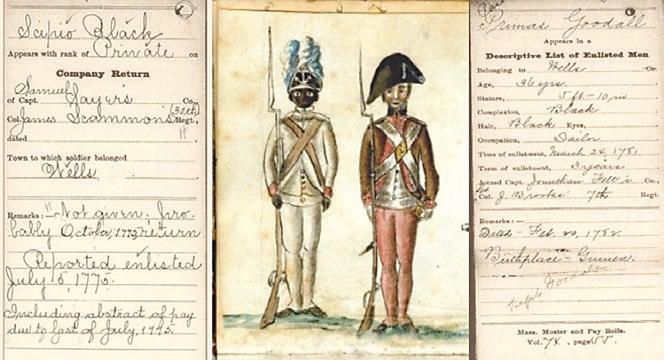 Scipio Black
Appears with rank of Private on
Company Return
Samuel
of Capt. Sayer's Co.,
(30th)
Col. James Scammons Regt.,
dated
Town to which soldier belonged
Wells
Remarks: Not given; pro-
bably October, 1775 return
Reported enlisted
July 5, 1775.
Including abstract of pay
due to last of July, 1775
Primas Goodall
Appears in a
Descriptive List of Enlisted Men
Belonging to Wells Co.
Age, 36 yrs.
Stature, 5 ft - 10 in
Complexion, Black
Hair, Black Eyes,
Occupation, Sailor
Time of enlistment, March 24, 1781
Term of enlistment, 3 years
Joined Capt. Jonathan Felt's Co.,
Col. J. Brooks' 7th Regt.
Remarks:
Dated - Feb. 20, 1782.
Birthplace - Guinea
Mass. Muster and Pay Rolls.
Vol. 74, page 55.